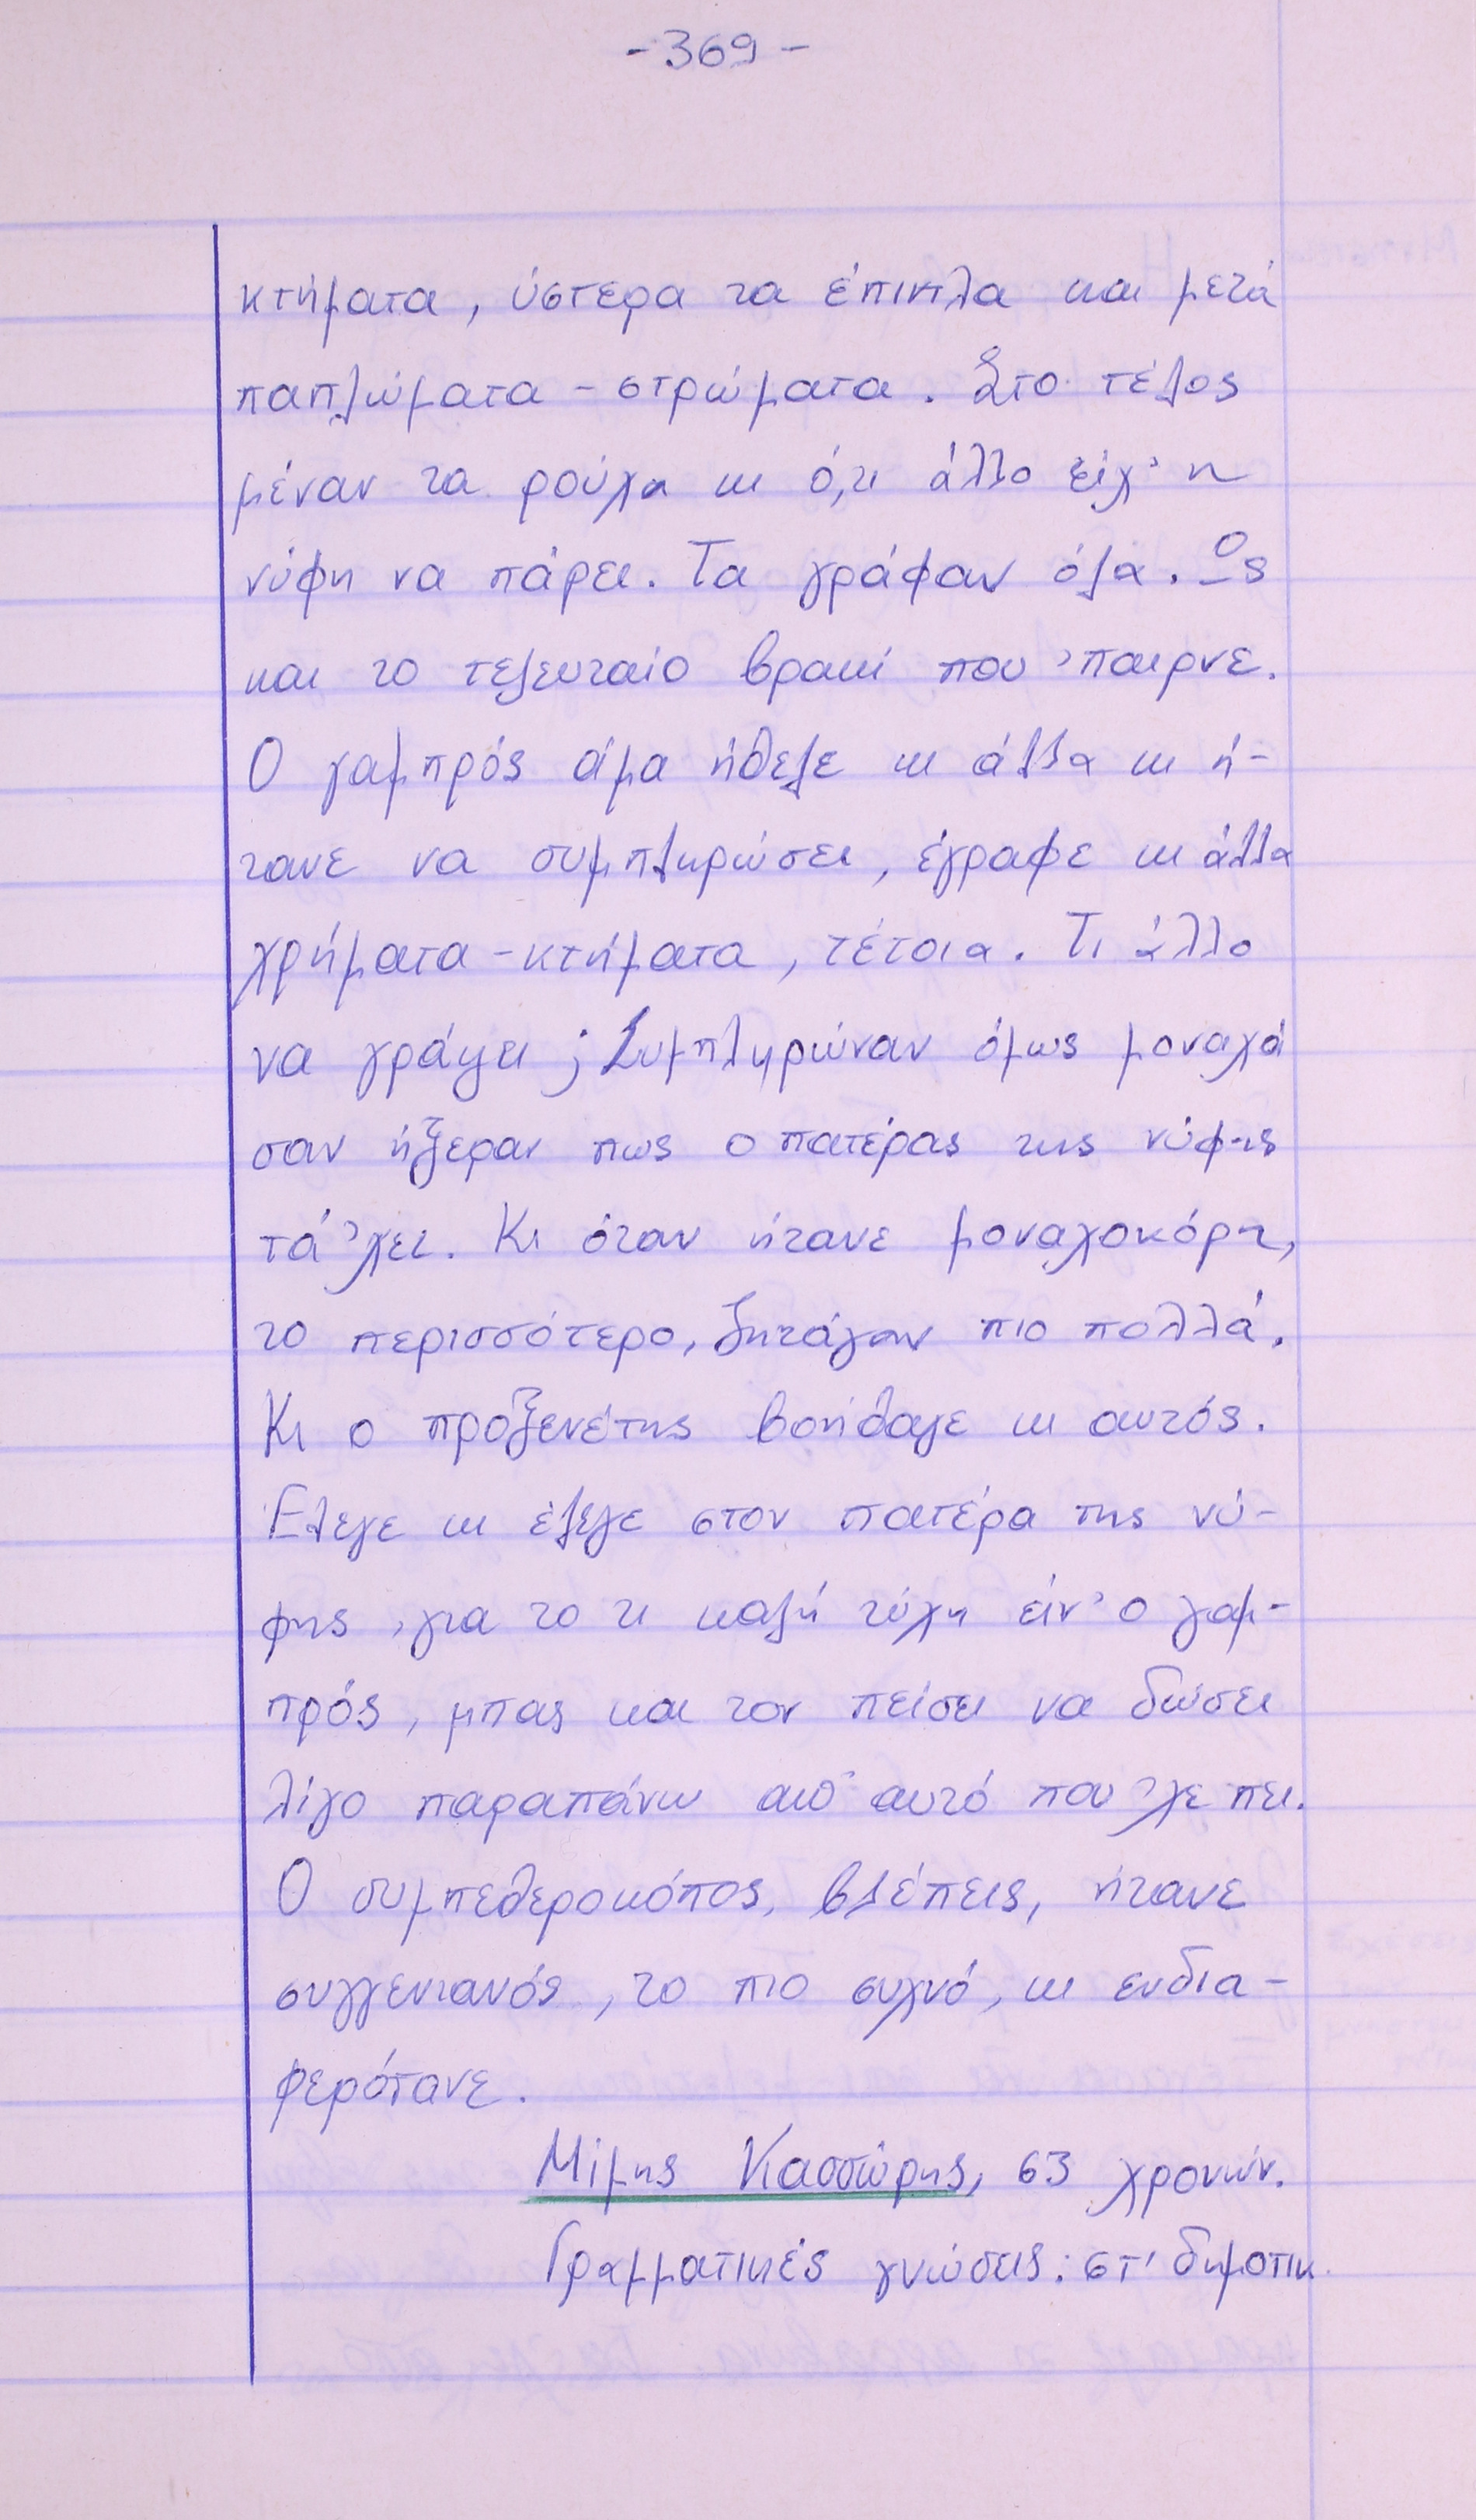 -369-
κτήματα, ύστερα τα έπιπλα και μετά
παπλώματα - στρώματα. Στο τέλος
μέναν τα ρούχα κι ό,τι άλλο είχ' η
νύφη να πάρει. Τα γράφαν όλα. Ως
και το τελευταίο βρακί που 'παιρνε.
Ο γαμπρός άμα ήθελε κι άλλα κι ή-
τανε να συμπληρώσει, έγραφε κι άλλα
χρήματα - κτήματα, τέτοια. Τι άλλο
να γράψει; Συμπληρώναν όμως μοναχά
σαν ήξεραν πως ο πατέρας της νύφης
τά 'χει. Κι όταν ήτανε μοναχοκόρη,
το περισσότερο, ζητάγαν πιο πολλά.
Κι ο προξενέτης βοήθαγε κι αυτός.
Έλεγε κι έλεγε στον πατέρα της νύ-
φης, για το τι καλή τύχη είν' ο γαμ-
πρός, μπας και τον πείσει να δώσει
λίγο παραπάνω απ' αυτό που 'χε πει.
Ο συμπεθεροκόπος, βλέπεις, ήτανε
συγγενιανός, το πιο συχνό, κι ενδια-
φερότανε.
Μίμης Κασσώρης, 63 χρονών.
Γραμματικές γνώσεις: στ' δημοτικ